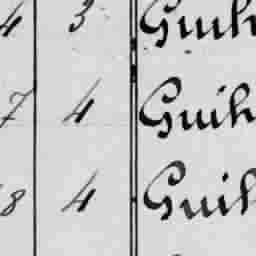 4 3 Guih
7 4 Guih
8 4 Guih